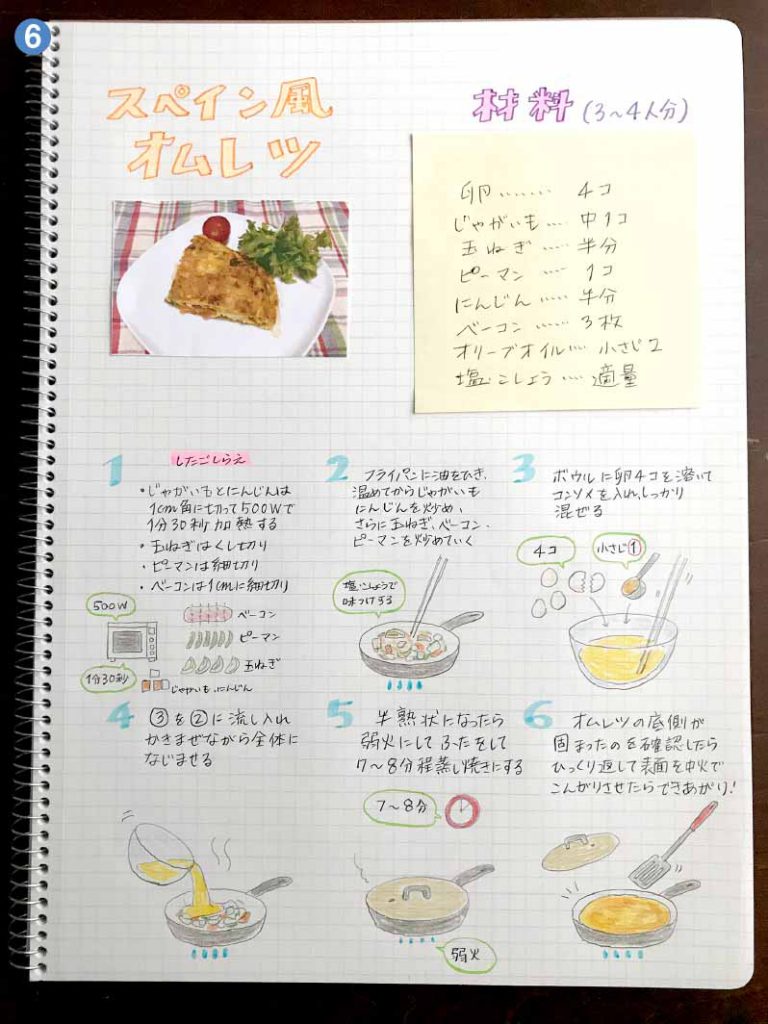 6
スペイン風
オムレツ
材料(3～4人分)
卵‥‥‥‥ 4コ
じゃがいも‥‥ 中1コ
玉ねぎ‥‥‥ 半分
ピーマン‥‥ 1コ
にんじん‥‥‥ 半分
ベーコン‥‥‥ 3枚
オリーブオイル‥‥ 小さじ2
塩・こしょう‥‥ 適量
1
したごしらえ
・じゃがいもとにんじんは
1cm角に切って500Wで
1分30秒加熱する
・玉ねぎはくし切り
・ピーマンは細切り
・ベーコンは1cmに細切り
500W
1分30秒
ベーコン
ピーマン
玉ねぎ
じゃがいも、にんじん
2
フライパンに油をひき、
温めてからじゃがいも
にんじんを炒め、
さらに玉ねぎ、ベーコン、
ピーマンを炒めていく
塩・こしょうで
味つけする
3
ボウルに卵4コを溶いて
コンソメを入れ、しっかり
混ぜる
4コ
小さじ1
4
③を②に流し入れ
かきまぜながら全体に
なじませる
5
半熟状になったら
弱火にしてふたをして
7～8分程蒸し焼きにする
7～8分
弱火
6
オムレツの底側が
固まったのを確認したら
ひっくり返して表面を中火で
こんがりさせたらできあがり!